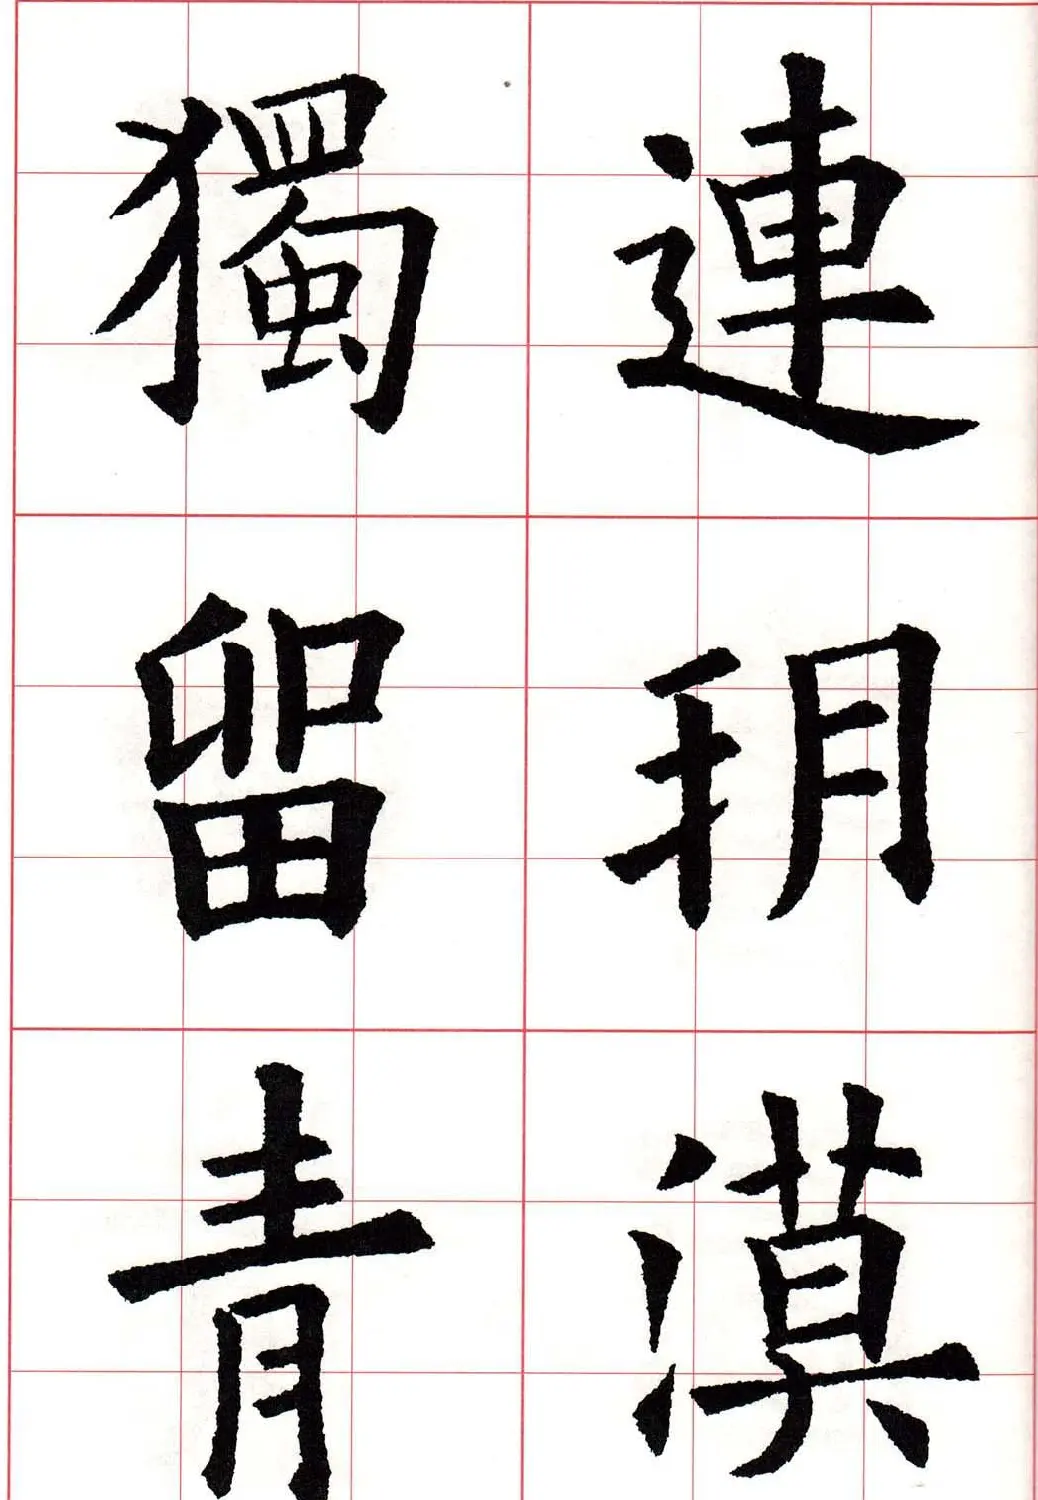 連朔漠
獨留青